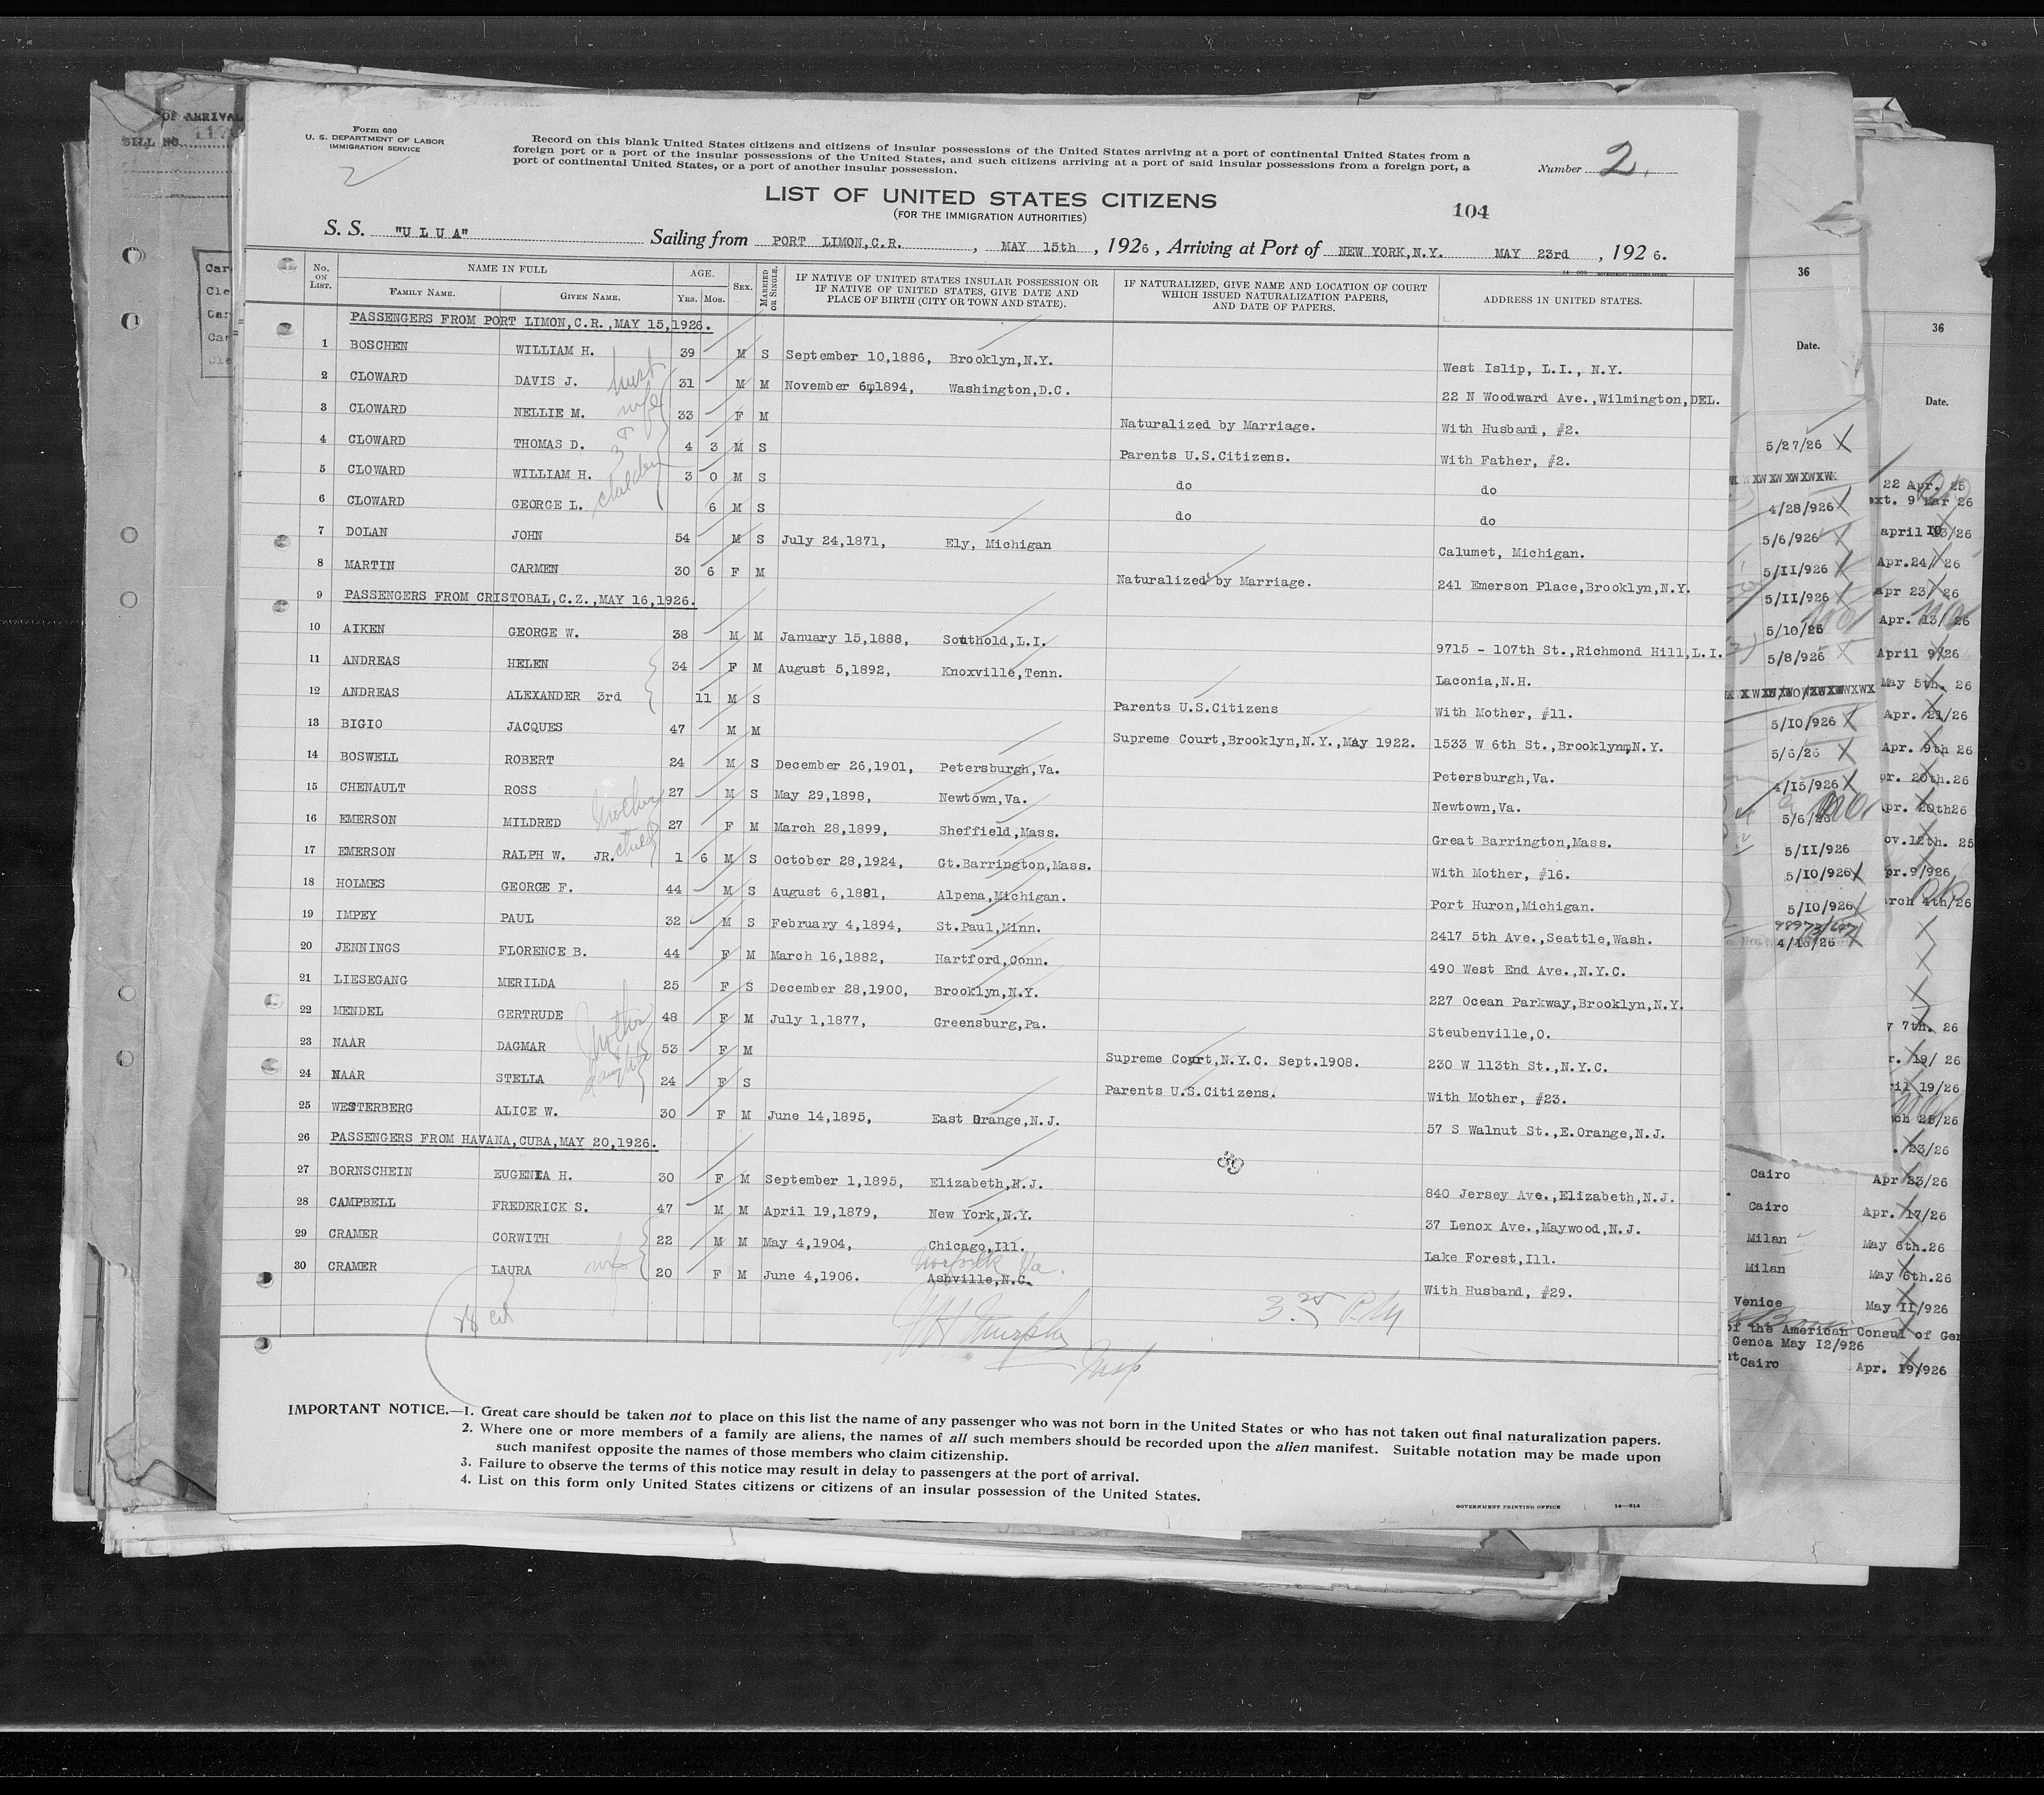 OF ARRIVAL
BILL NO.
Form 630
U. S. DEPARTMENT OF LABOR
IMMIGRATION SERVICE
2
Record on this blank United States citizens and citizens of insular possessions of the United States arriving at a port of continental United States from a
foreign port or a port of the insular possessions of the United States, and such citizens arriving at a port of said insular possessions from a foreign port, a
port of continental United States, or a port of another insular possession.
Number 2.
LIST OF UNITED STATES CITIZENS
(FOR THE IMMIGRATION AUTHORITIES)
104
S. S. "U L U A" Sailing from PORT LIMON,C.R. , MAY 15th , 1926 , Arriving at Port of NEW YORK,N.Y. MAY 23rd , 1926.
No. ON LIST. NAME IN FULL FAMILY NAME. GIVEN NAME. AGE. YRS. MOS. SEX. MARRIED OR SINGLE. IF NATIVE OF UNITED STATES INSULAR POSSESSION OR IF NATIVE OF UNITED STATES, GIVE DATE AND PLACE OF BIRTH (CITY OR TOWN AND STATE). IF NATURALIZED, GIVE NAME AND LOCATION OF COURT WHICH ISSUED NATURALIZATION PAPERS, AND DATE OF PAPERS. ADDRESS IN UNITED STATES.
PASSENGERS FROM PORT LIMON,C.R.,MAY 15,1926.
1 BOSCHEN WILLIAM H. 39 M S September 10,1886, Brooklyn,N.Y. West Islip, L.I., N.Y.
2 CLOWARD DAVIS J. husb 31 M M November 6,1894, Washington,D.C. 22 N Woodward Ave.,Wilmington,DEL.
3 CLOWARD NELLIE M. wife 33 F M Naturalized by Marriage. With Husband, #2.
4 CLOWARD THOMAS D. & 3 4 3 M S Parents U.S.Citizens. With Father, #2.
5 CLOWARD WILLIAM H. children 3 0 M S do do
6 CLOWARD GEORGE L. 6 M S do do
7 DOLAN JOHN 54 M S July 24,1871, Ely, Michigan Calumet, Michigan.
8 MARTIN CARMEN 30 6 F M Naturalized by Marriage. 241 Emerson Place,Brooklyn,N.Y.
9 PASSENGERS FROM CRISTOBAL,C.Z.,MAY 16,1926.
10 AIKEN GEORGE W. 38 M M January 15,1888, Southold,L.I. 9715 - 107th St.,Richmond Hill,L.I.
11 ANDREAS HELEN 34 F M August 5,1892, Knoxville,Tenn. Laconia,N.H.
12 ANDREAS ALEXANDER 3rd 11 M S Parents U.S.Citizens With Mother, #11.
13 BIGIO JACQUES 47 M M Supreme Court,Brooklyn,N.Y.,May 1922. 1533 W 6th St.,Brooklyn,N.Y.
14 BOSWELL ROBERT 24 M S December 26,1901, Petersburgh,Va. Petersburgh,Va.
15 CHENAULT ROSS 27 M S May 29,1898, Newtown,Va. Newtown,Va.
16 EMERSON MILDRED Mother 27 F M March 28,1899, Sheffield,Mass. Great Barrington,Mass.
17 EMERSON RALPH W. JR. child 1 6 M S October 28,1924, Gt.Barrington,Mass. With Mother, #16.
18 HOLMES GEORGE F. 44 M S August 6,1881, Alpena,Michigan. Port Huron,Michigan.
19 IMPEY PAUL 32 M S February 4,1894, St.Paul,Minn. 2417 5th Ave.,Seattle,Wash.
20 JENNINGS FLORENCE B. 44 F M March 16,1882, Hartford,Conn. 490 West End Ave.,N.Y.C.
21 LIESEGANG MERILDA 25 F S December 28,1900, Brooklyn,N.Y. 227 Ocean Parkway,Brooklyn,N.Y.
22 MENDEL GERTRUDE 48 F M July 1,1877, Greensburg,Pa. Steubenville,O.
23 NAAR DAGMAR Mother 53 F M Supreme Court,N.Y.C. Sept.1908. 230 W 113th St.,N.Y.C.
24 NAAR STELLA & daughter 24 F S Parents U.S.Citizens. With Mother, #23.
25 WESTERBERG ALICE W. 30 F M June 14,1895, East Orange,N.J. 57 S Walnut St.,E.Orange,N.J.
26 PASSENGERS FROM HAVANA,CUBA,MAY 20,1926.
27 BORNSCHEIN EUGENIA H. 30 F M September 1,1895, Elizabeth,N.J. 840 Jersey Ave.,Elizabeth,N.J.
28 CAMPBELL FREDERICK S. 47 M M April 19,1879, New York,N.Y. 37 Lenox Ave.,Maywood,N.J.
29 CRAMER CORWITH 22 M M May 4,1904, Chicago,Ill. Lake Forest,Ill.
Norfolk Va.
30 CRAMER LAURA wife 20 F M June 4,1906. Ashville,N.C. With Husband, #29.
Murphy
Insp
IMPORTANT NOTICE.—1. Great care should be taken not to place on this list the name of any passenger who was not born in the United States or who has not taken out final naturalization papers.
2. Where one or more members of a family are aliens, the names of all such members should be recorded upon the alien manifest. Suitable notation may be made upon
such manifest opposite the names of those members who claim citizenship.
3. Failure to observe the terms of this notice may result in delay to passengers at the port of arrival.
4. List on this form only United States citizens or citizens of an insular possession of the United States.
GOVERNMENT PRINTING OFFICE
36
Date.
5/27/26
4/28/926
5/6/926
5/11/926
5/11/926
5/10/26
5/8/926
5/10/926
5/6/26
4/15/926
5/6/26
5/11/926
5/10/926
5/10/926
4/15/26
Cairo
Cairo
Milan
Milan
Venice
of the American Consul of Gen
Genoa May 12/926
Cairo
36
Date.
22 Apr. 25
ext. 9 Mar 26
Apr.24/ 26
apr 23/ 26
Apr. 13/ 26
April 9/26
May 5th. 26
Apr. 21/26
Apr. 9th 26
pr. 20th.26
Apr. 20th26
ov.12th. 25
pr.9/926
arch 4th/26
7th. 26
r. 19/ 26
ril 19/26
23/26
Apr 23/26
Apr. 17/26
May 6th.26
May 6th.26
May 11/926
Apr. 19/926